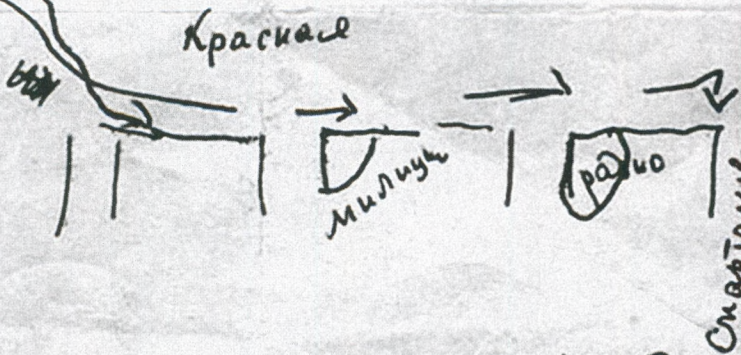 Красная
милиция
радио